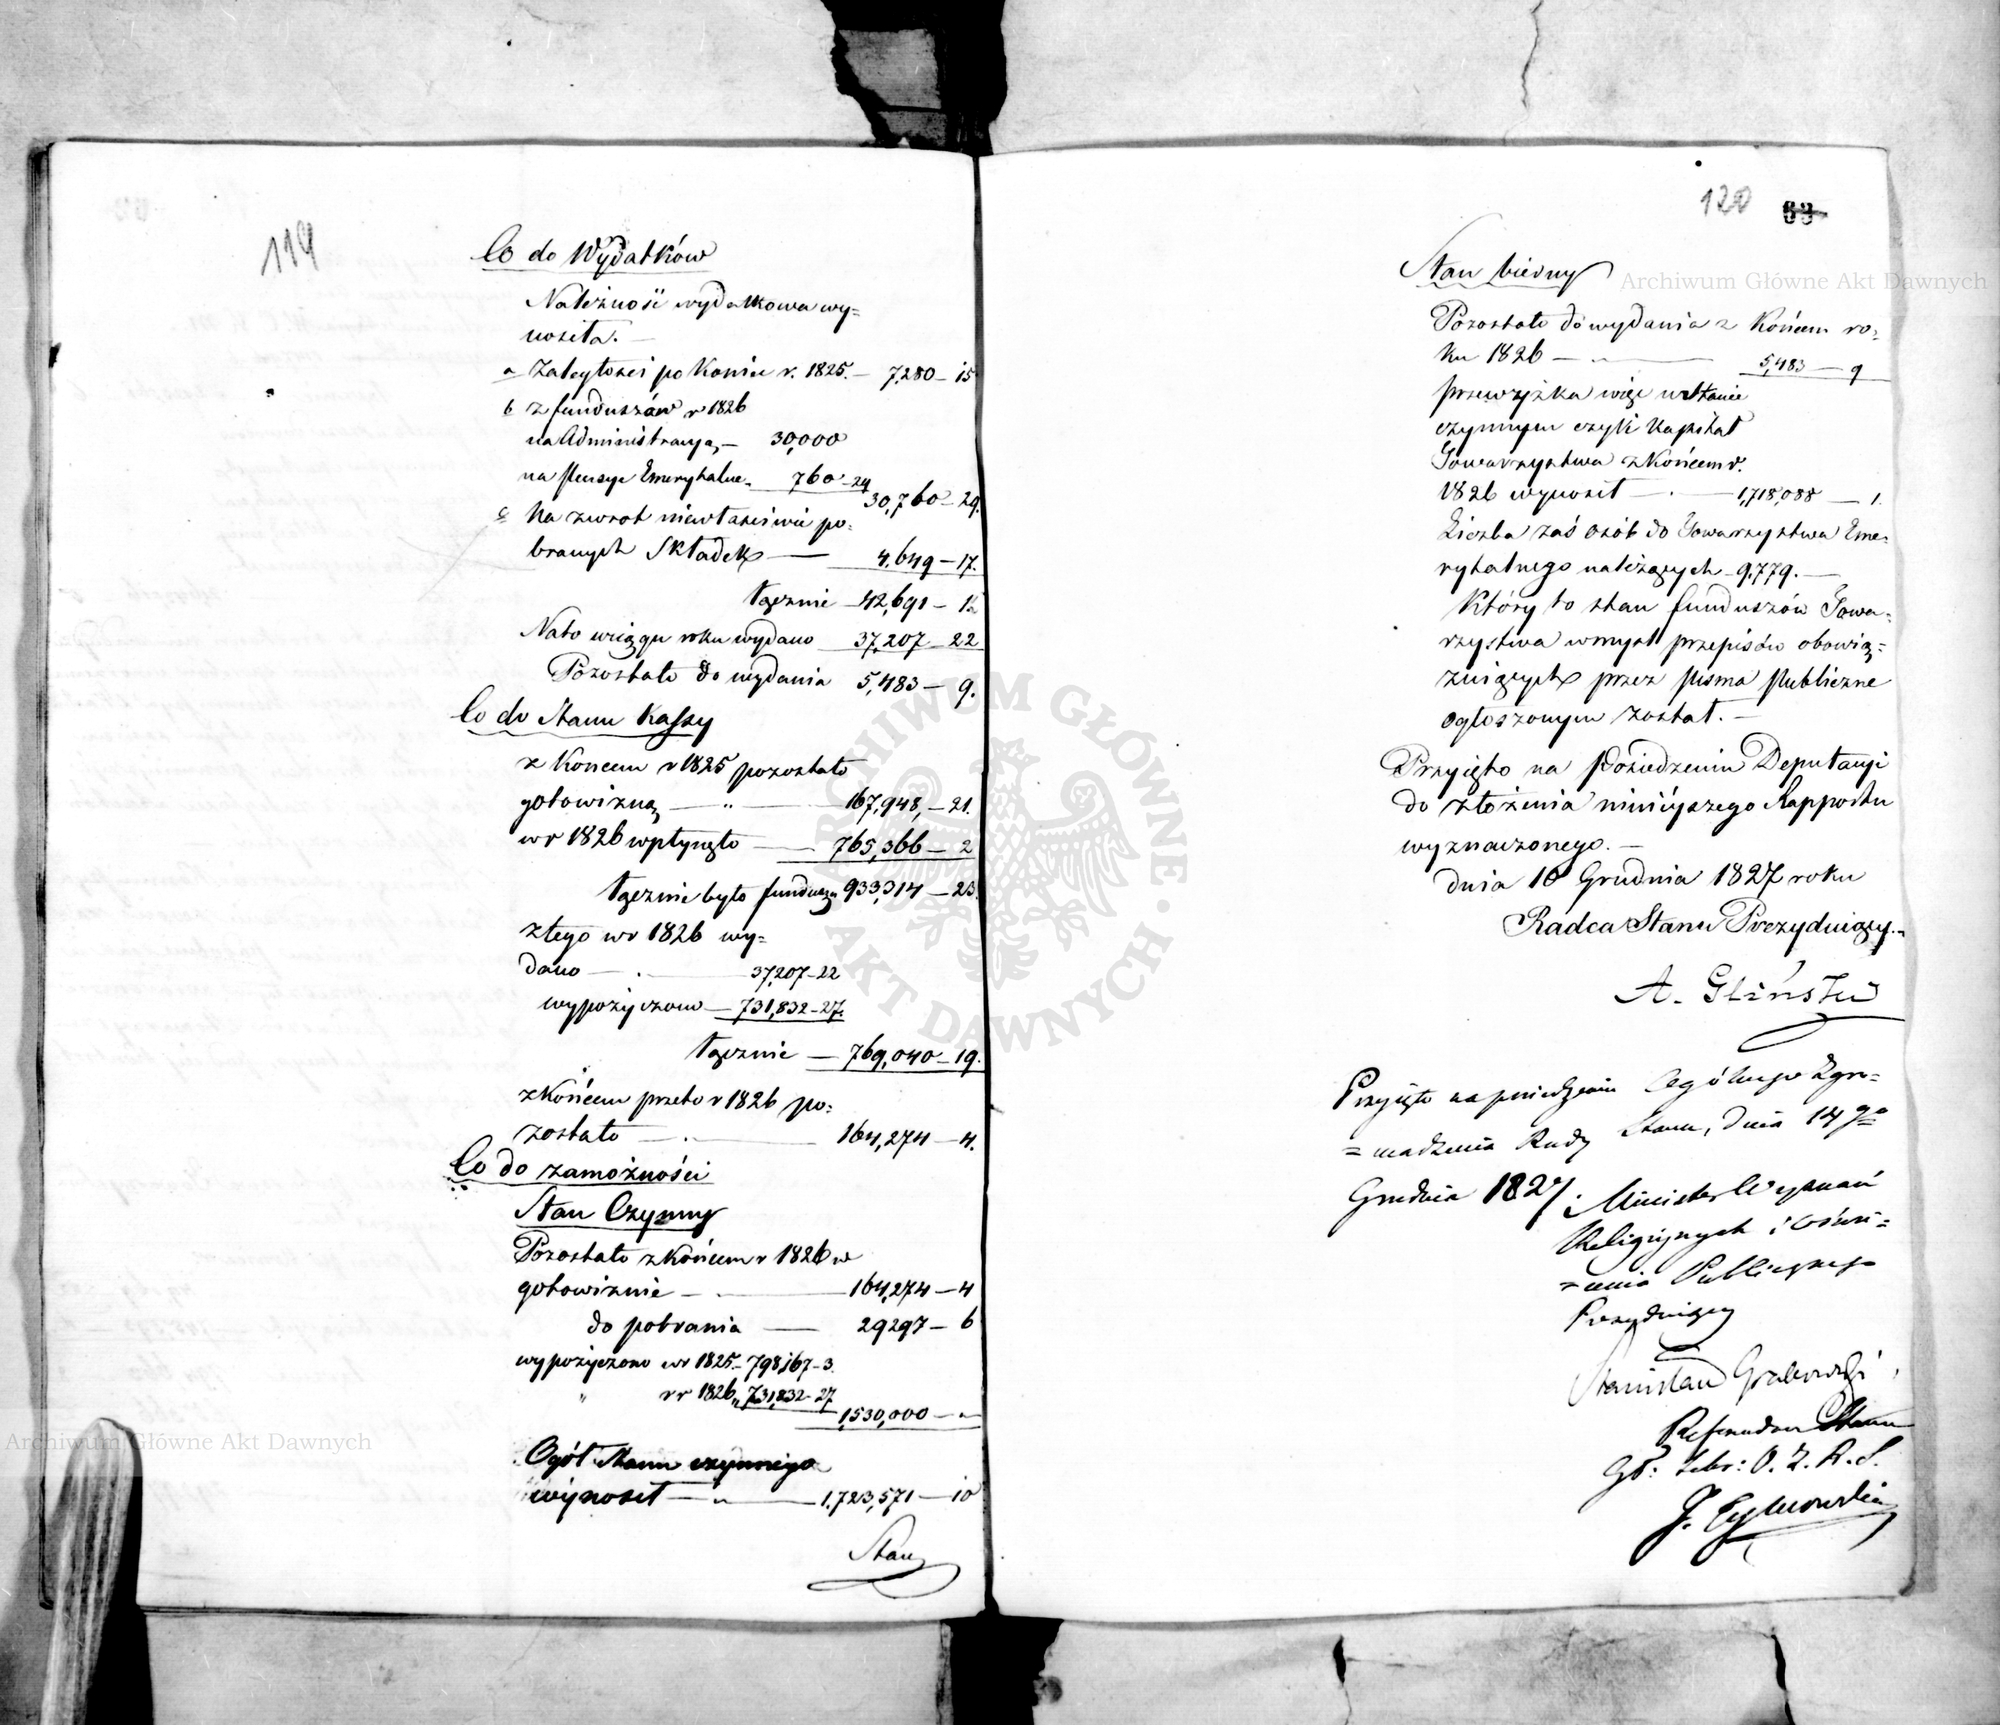 119
Co do Wydatków
Należność wydatkowa wy=
nosiła. —
a Zaległości po końcu r. 1825. — 7,280 — 15
b z funduszów r 1826
na Administracyą — 30,000
na Pensye Emerytalne — 760 — 29
30,760 — 29.
c Na zwrot niewłaściwie po=
branych Składek — 4,649 — 17.
łącznie — 42,691 — 1
Na to wciągu roku wydano 37,207 — 22
Pozostało do wydania 5,483 — 9.
Co do Stanu Kassy
z końcem r 1825 pozostało
gotowizną — " — 167,948, — 21.
w r 1826 wpłynęło — 765,366 — 2
łącznie było funduszu 933,314 — 23.
z tego w r 1826 wy=
dano — . 37,207 — 22
wypożyczono — 731,832 — 27.
łącznie — 769,040 — 19.
z Końcem przeto r 1826 po=
zostało — . — 164,274 — 4.
Co do zamożności
Stan Czynny
Pozostało z Końcem r 1826 w
gotowiznie — . — 164,274 — 4
do pobrania — 29297 — 6
wypożyczono w r 1825. — 798,167 — 3.
" w r 1826 " 731,832 — 27
1,530,000 — "
Ogół Stanu czynnego
wynosił — " — 1,723,571 — 10
Stan
120 63
Stan bierny
Pozostało do wydania z Końcem ro=
ku 1826 — " — 5,483 — 9
przewyżka więc w Stanie
czynnym czyli Kapitał
Towarzystwa z Końcem r.
1826 wynosił — . — 1,718,088 — 1.
Liczba zaś osób do Towarzystwa Eme=
rytalnego należących — 9,779. —
Który to stan funduszów Towa=
rzystwa w myśl przepisów obowią=
zuiących przez Pisma Publiczne
ogłoszonym został. —
Przyięto na Posiedzeniu Deputacyi
do złożenia ninieyszego Rapportu
wyznaczonego. —
dnia 10 Grudnia 1827 roku
Radca Stanu Prezyduiący. =
A. Gliński
Przyięto na posiedzeniu Ogólnego Zgro=
= madzenia Rady Stanu, dnia 14 go
Grudnia 1827. Minister Wyznań
Religiynych i Oświe=
= cenia Publicznego
Prezyduiący
Stanisław Grabowski
Referendarz Stanu
Gł: Sekr: O. Z. R. S.
J. Tymowski
Archiwum Główne Akt Dawnych
Archiwum Główne Akt Dawnych
ARCHIWUM GŁÓWNE · AKT DAWNYCH ·